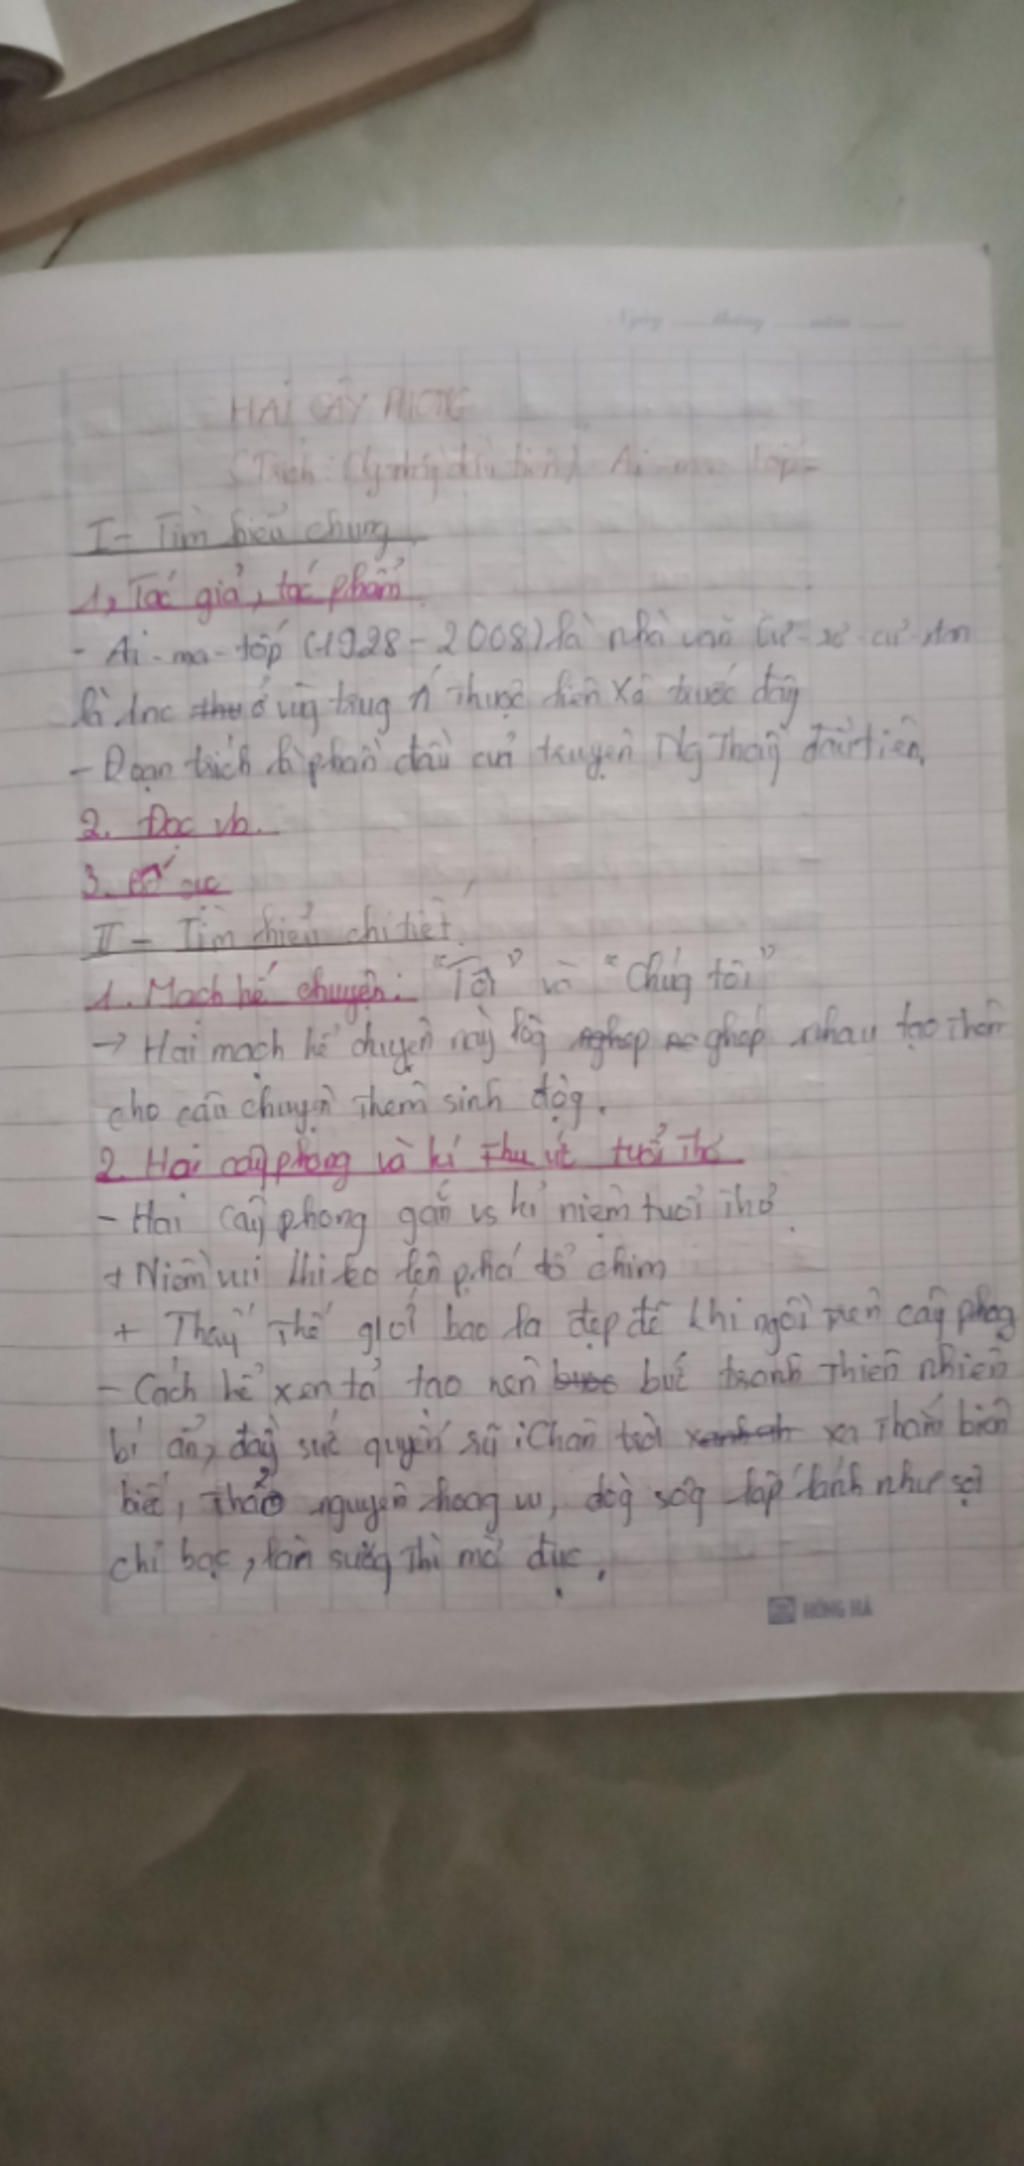 Ngày tháng năm
HAI CÂY PHONG
(Trích: đầu tiên) Ai-ma-tốp
I- Tìm hiểu chung
1, Tác giả, tác phẩm
- Ai-ma-tốp (1928-2008) là nhà văn Cư-rơ-gư-xtan
là ở vùg trug Á Thuộc Liên Xô trước đây
- Đoạn trích là phần đầu của truyện Ng Thầy đầu tiên.
2. Đọc vb.
3. Bố cục
II - Tìm hiểu chi tiết.
1. Mạch kể chuyện: "Tôi" và "Chúg tôi"
→ Hai mạch kể chuyện này lồg ghép nhau tạo thêm
cho câu chuyện thêm sinh độg.
2. Hai cây phong và kí tuổi thơ
- Hai cây phong gắn vs kỉ niệm tuổi thơ.
+ Niềm vui khi lên phá tổ chim
+ Thấy thế giới bao la đẹp đẽ khi ngồi trên cây phog
- Cách kể xen tả tạo nên bức tranh thiên nhiên
bí ẩn, đầy sức quyến rũ: Chân trời xa thẳm biên
biếc, thảo nguyên hoang vu, dòg sôg lấp lánh như sợi
chỉ bạc, làn sươg thì mờ đục.
HỒNG HÀ